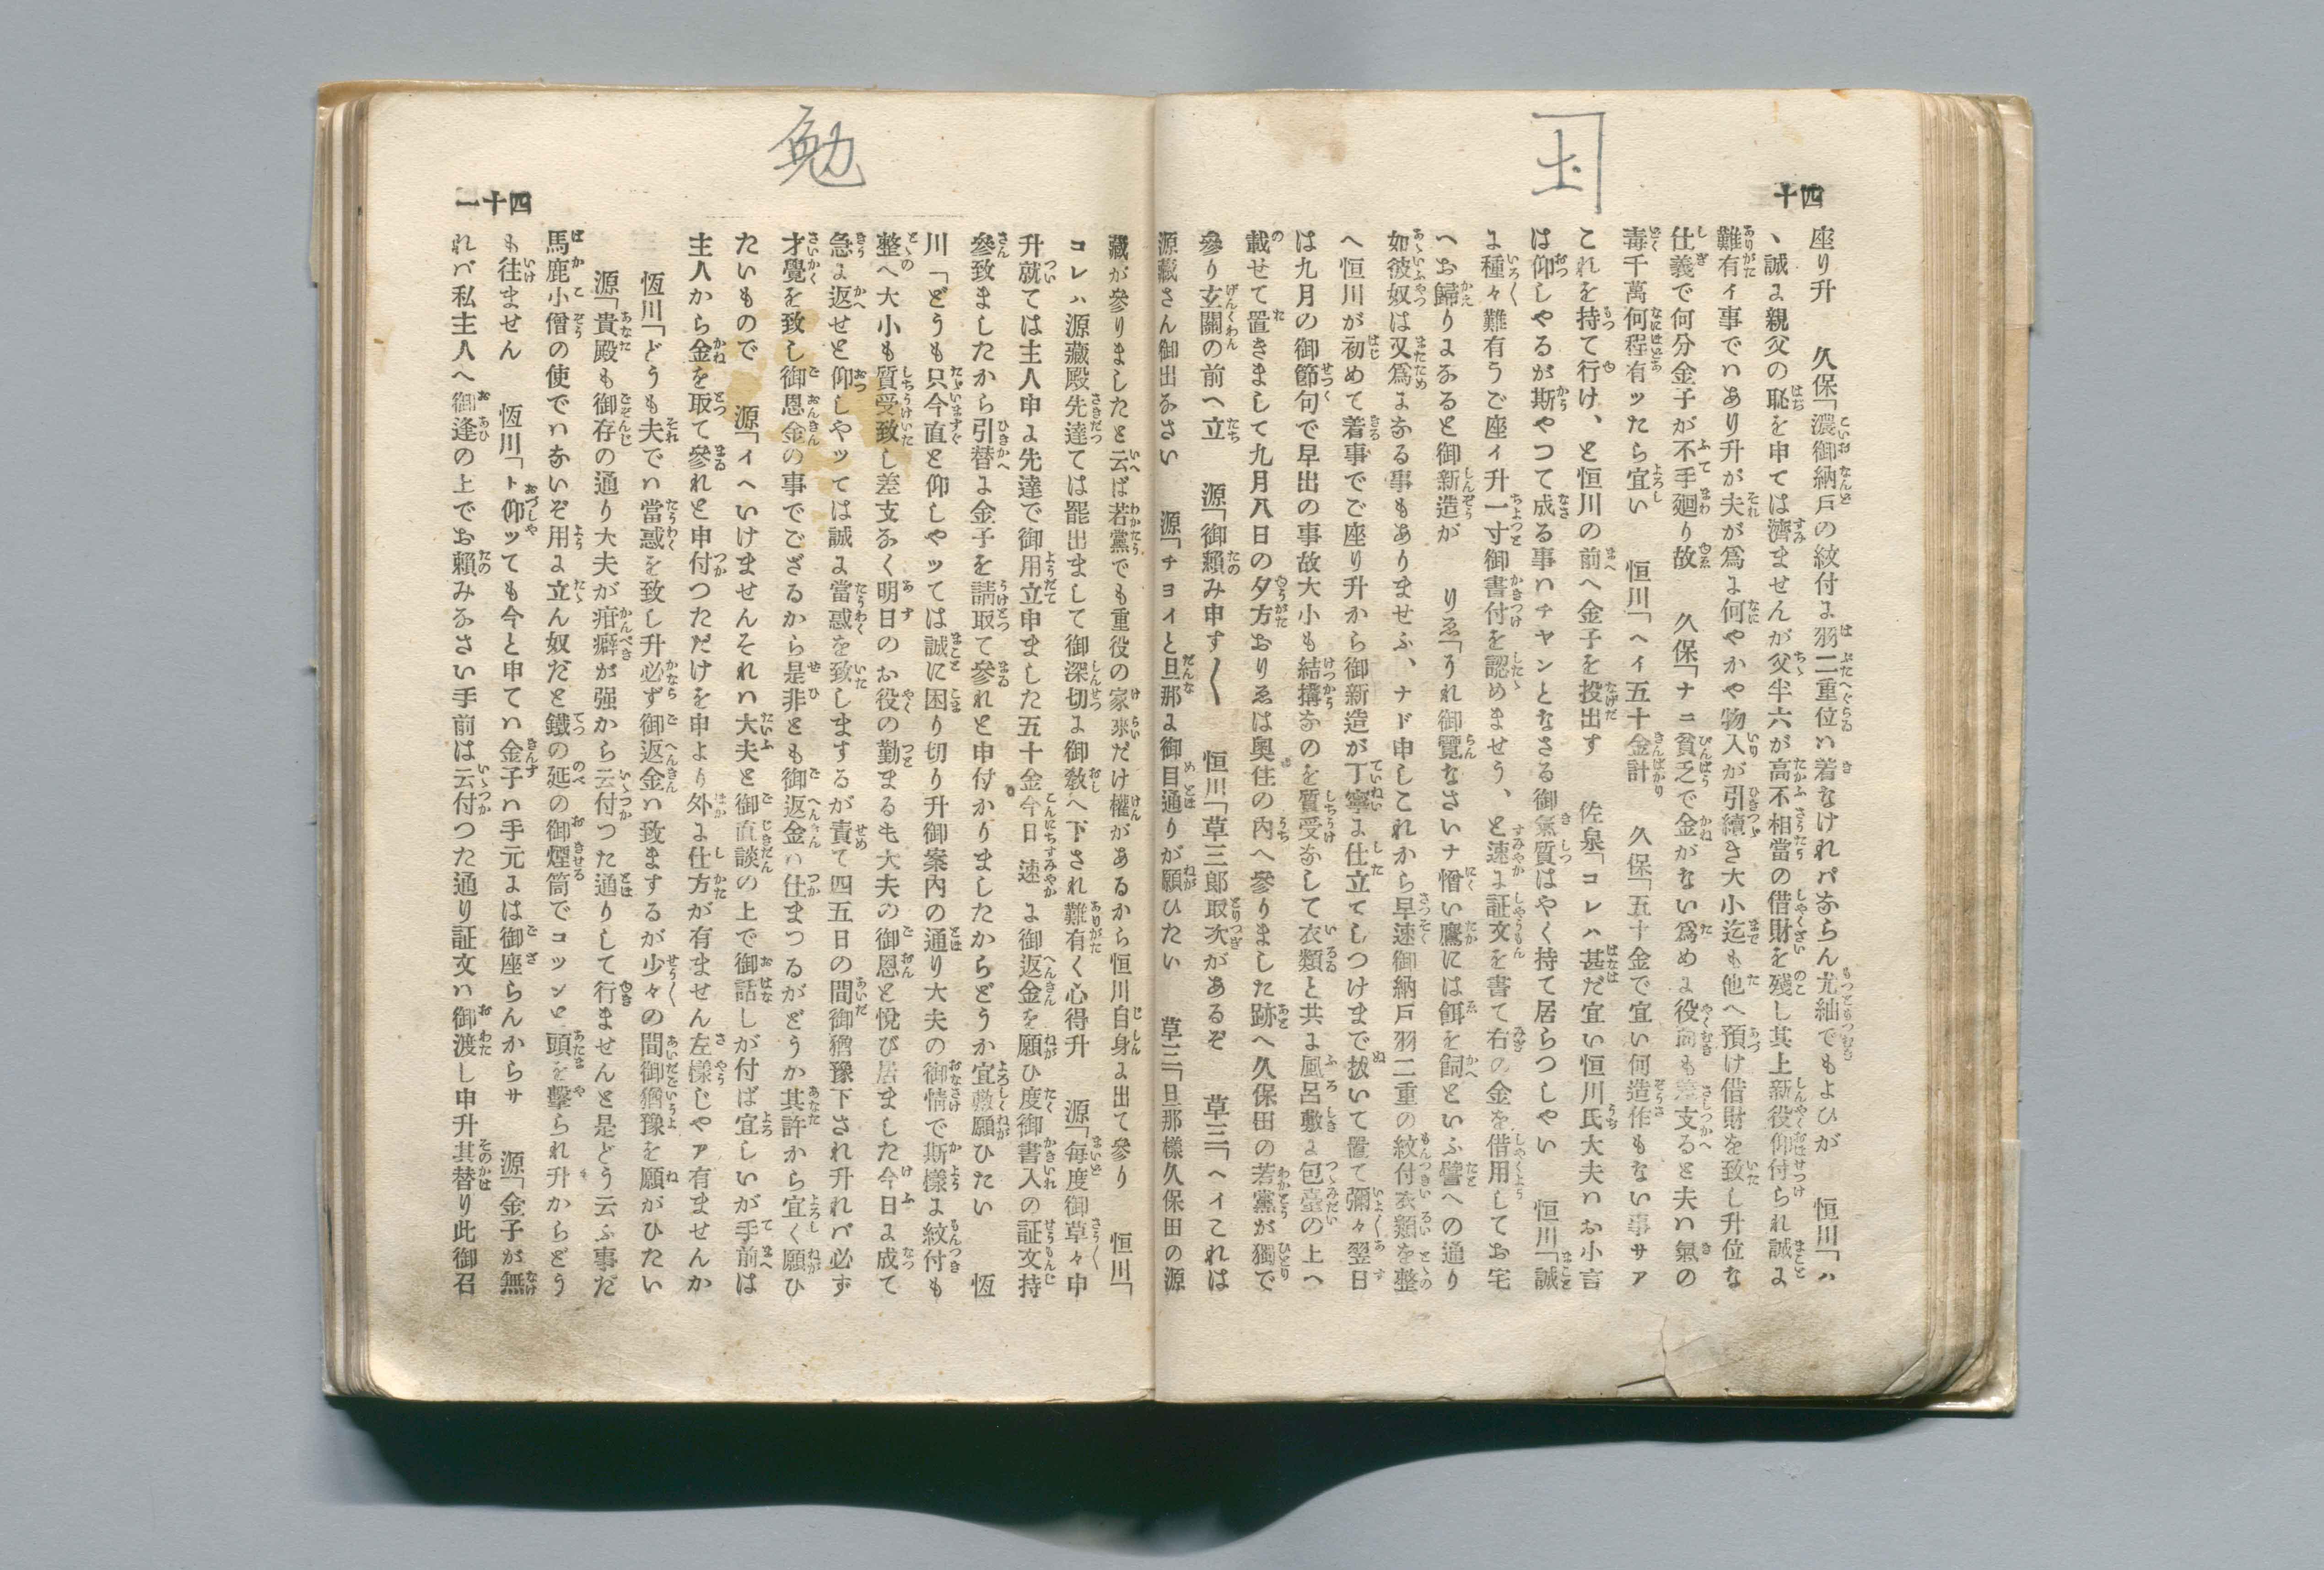 国
四十
座り升　久保「濃御納戸の紋付よ羽二重位ハ着なけれバならん尤紬でもよひが　恒川「ハ
ヽ誠よ親父の恥を申ては濟ませんが父半六が高不相當の借財を残し其上新役仰付られ誠よ
難有イ事でハあり升が夫が爲よ何やかや物入が引續き大小迄も他へ預け借財を致し升位な
仕義で何分金子が不手廻り故　久保「ナニ貧乏で金がない爲めよ役向も差支ると夫ハ氣の
毒千萬何程有ッたら宜い　恒川「ヘイ五十金計　久保「五十金で宜い何造作もない事サア
これを持て行け、と恒川の前へ金子を投出す　佐泉「コレハ甚だ宜い恒川氏大夫ハお小言
は仰しやるが斯やつて成る事ハチヤンとなさる御氣質はやく持て居らつしやい　恒川「誠
よ種々難有うご座ィ升一寸御書付を認めませう、と速よ証文を書て右の金を借用してお宅
へお歸りよなると御新造が　りゑ「うれ御覽なさいナ憎い鷹には餌を飼といふ譬への通り
如彼奴は又爲よなる事もありませふ、ナド申しこれから早速御納戸羽二重の紋付衣類を整
へ恒川が初めて着事でご座り升から御新造が丁寧よ仕立てしつけまで拔いて置て彌々翌日
は九月の御節句で早出の事故大小も結搆なのを質受なして衣類と共よ風呂敷よ包臺の上へ
載せて置きまして九月八日の夕方おりゑは奥住の内へ參りました跡へ久保田の若黨が獨で
參り玄關の前へ立　源「御頼み申す〱　恒川「草三郎取次があるぞ　草三「ヘイこれは
源藏さん御出なさい　源「チヨイと旦那よ御目通りが願ひたい　草三「旦那樣久保田の源
勉
四十一
藏が參りましたと云ば若黨でも重役の家來だけ權があるから恒川自身よ出て參り　恒川「
コレハ源藏殿先達ては罷出まして御深切よ御敎へ下され難有く心得升　源「毎度御草々申
升就ては主人申よ先達で御用立申ました五十金今日速よ御返金を願ひ度御書入の証文持
參致ましたから引替よ金子を請取て參れと申付かりましたからどうか宜敷願ひたい　恆
川「どうも只今直と仰しやッては誠に困り切り升御案內の通り大夫の御情で斯樣よ紋付も
整へ大小も質受致し差支なく明日のお役の勤まるも大夫の御恩と悅び居ました今日よ成て
急よ返せと仰しやッては誠よ當惑を致しまするが責て四五日の間御猶豫下され升れバ必ず
才覺を致し御恩金の事でござるから是非とも御返金ハ仕まつるがどうか其許から宜く願ひ
たいもので　源「イヘいけませんそれハ大夫と御直談の上で御話しが付ば宜しいが手前は
主人から金を取て參れと申付つただけを申より外よ仕方が有ません左樣じやア有ませんか
　恆川「どうも夫でハ當惑を致し升必ず御返金ハ致まするが少々の間御猶豫を願がひたい
　源「貴殿も御存の通り大夫が疳癖が强から云付つた通りして行ませんと是どう云ふ事だ
馬鹿小僧の使でハないぞ用よ立ん奴だと鐵の延の御煙筒でコツンと頭を擊られ升からどう
も往ません　恆川「ト仰ッても今と申てハ金子ハ手元よは御座らんからサ　源「金子が無
れバ私主人へ御逢の上でお賴みなさい手前は云付つた通り証文ハ御渡し申升其替り此御召